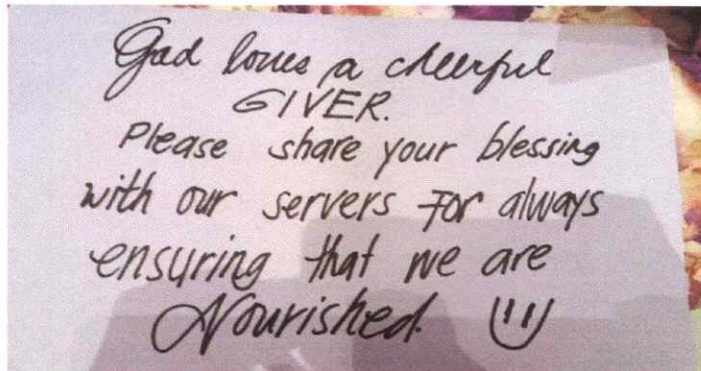 God loves a cheerful
GIVER.
Please share your blessing
with our servers for always
ensuring that we are
Nourished.